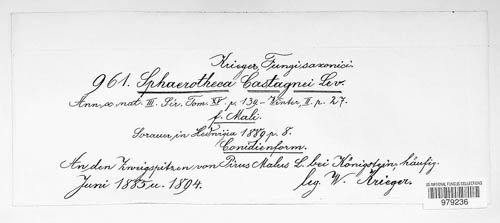 Krieger, Fungi saxonici.
961. Sphaerotheca Castagnei Lev.
Ann. sc. nat. III. Sér. Tom. XV p. 139 - Winter, II. p. 27.
f. Mali.
Sorauer, in Hedwigia 1889 p. 8.
Conidienform.
An den Zweigspitzen von Pirus Malus L. bei Königstein, häufig.
Juni 1885 u. 1894. leg. W. Krieger.
US NATIONAL FUNGUS COLLECTIONS
979236